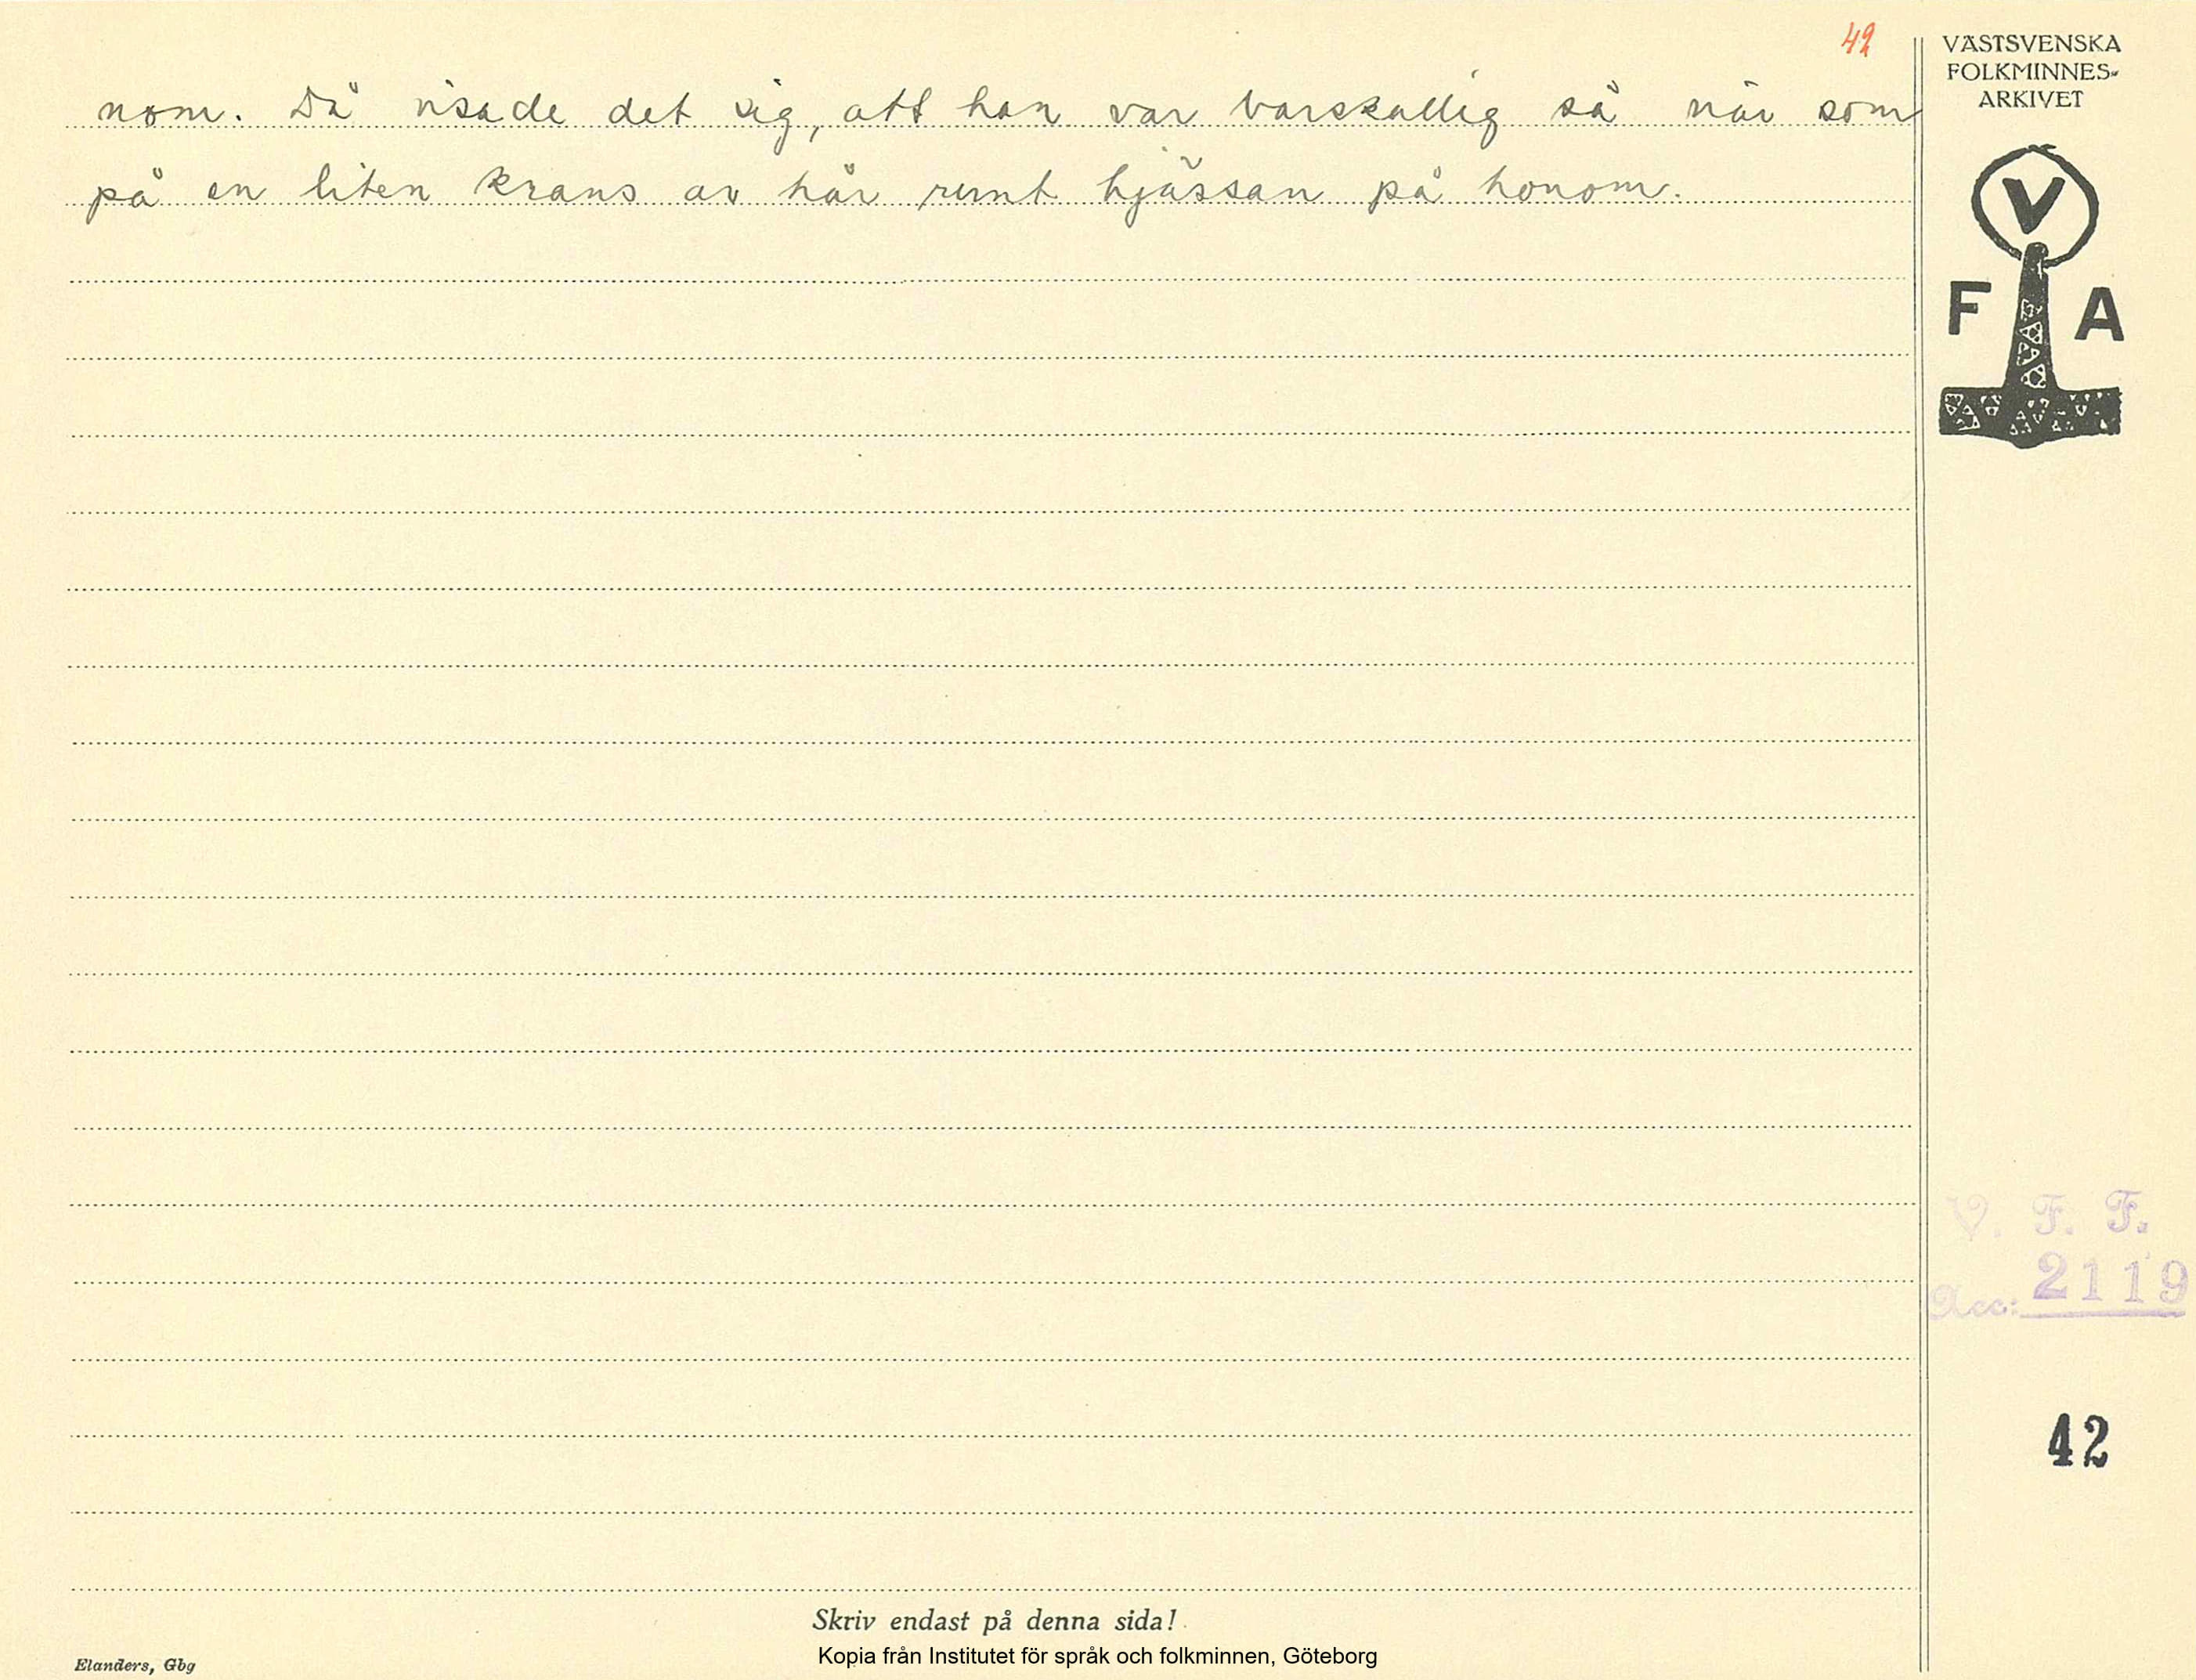 42
nom. Då visade det sig, att han var barskallig så när som
på en liten krans av hår runt hjässan på honom.
VÄSTSVENSKA
FOLKMINNES-
ARKIVET
V
F A
V. F. F.
Acc: 2119
42
Skriv endast på denna sida!
Kopia från Institutet för språk och folkminnen, Göteborg
Elanders, Gbg